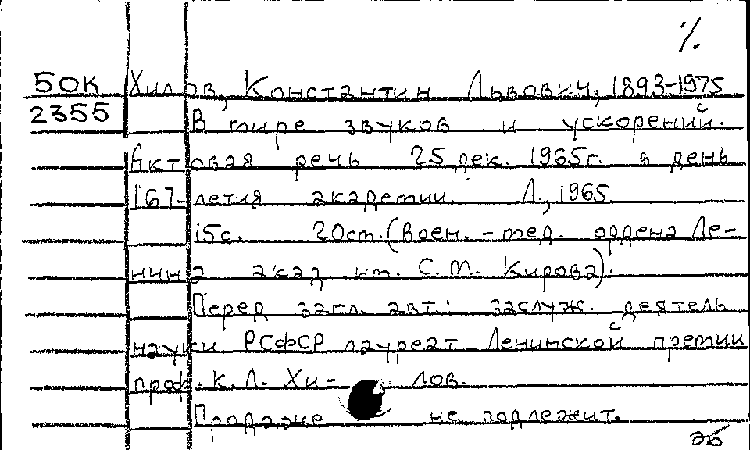 %
50К Хилов, Константин Львович, 1893-1975
2355 В мире звуков и ускорений.
Актовая речь 25 дек. 1965г. в день
167-летия академии. Л., 1965
15с. 20см. (Воен.-мед. ордена Ле-
нина акад. им. С.М. Кирова).
Перед загл. авт.: заслуж. деятель
науки РСФСР лауреат Ленинской премии
проф. К.Л. Хи- лов.
Продаже не подлежит.